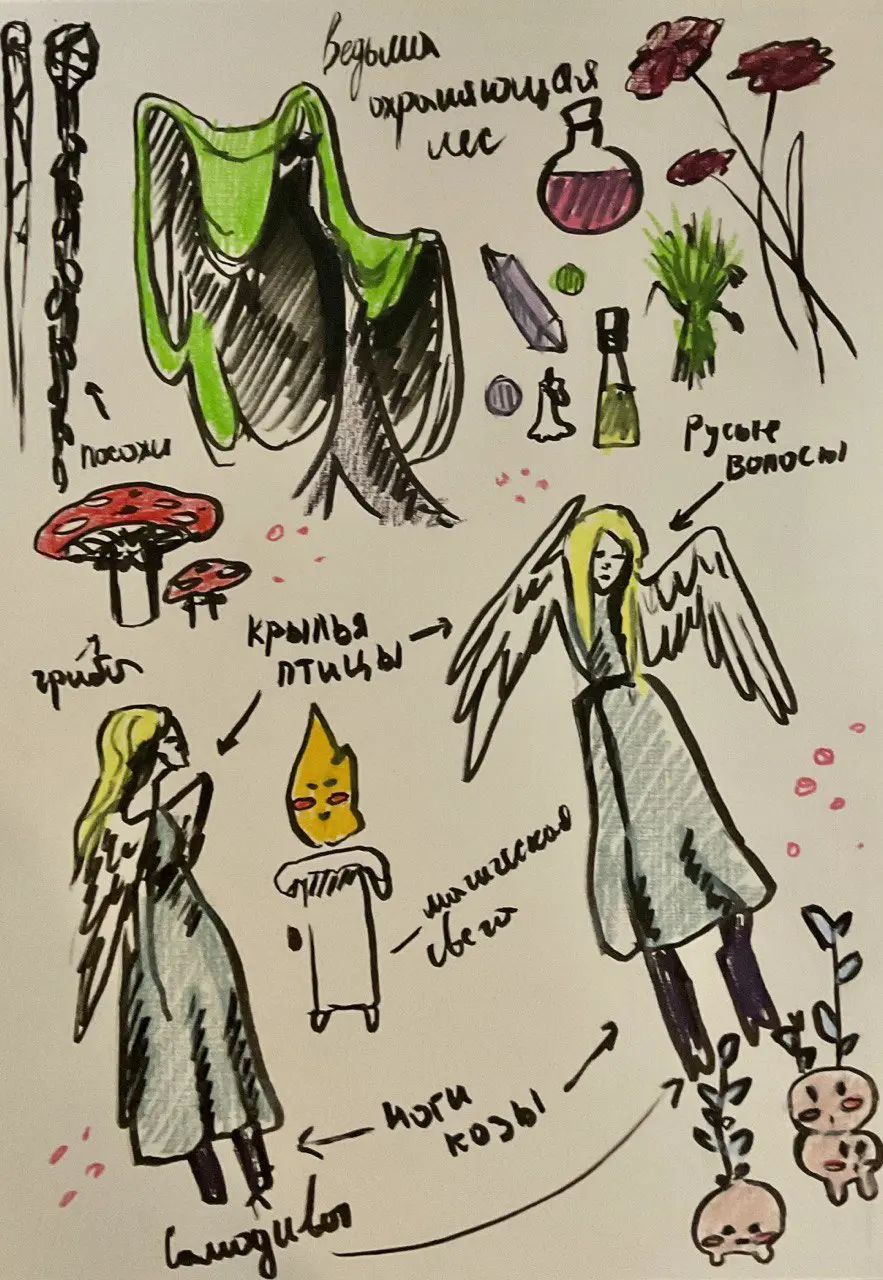 Ведьма
охраняющая
лес
посохи
Русые
волосы
грибы
крылья
птицы
магическая
свеча
ноги
козы
Самодива